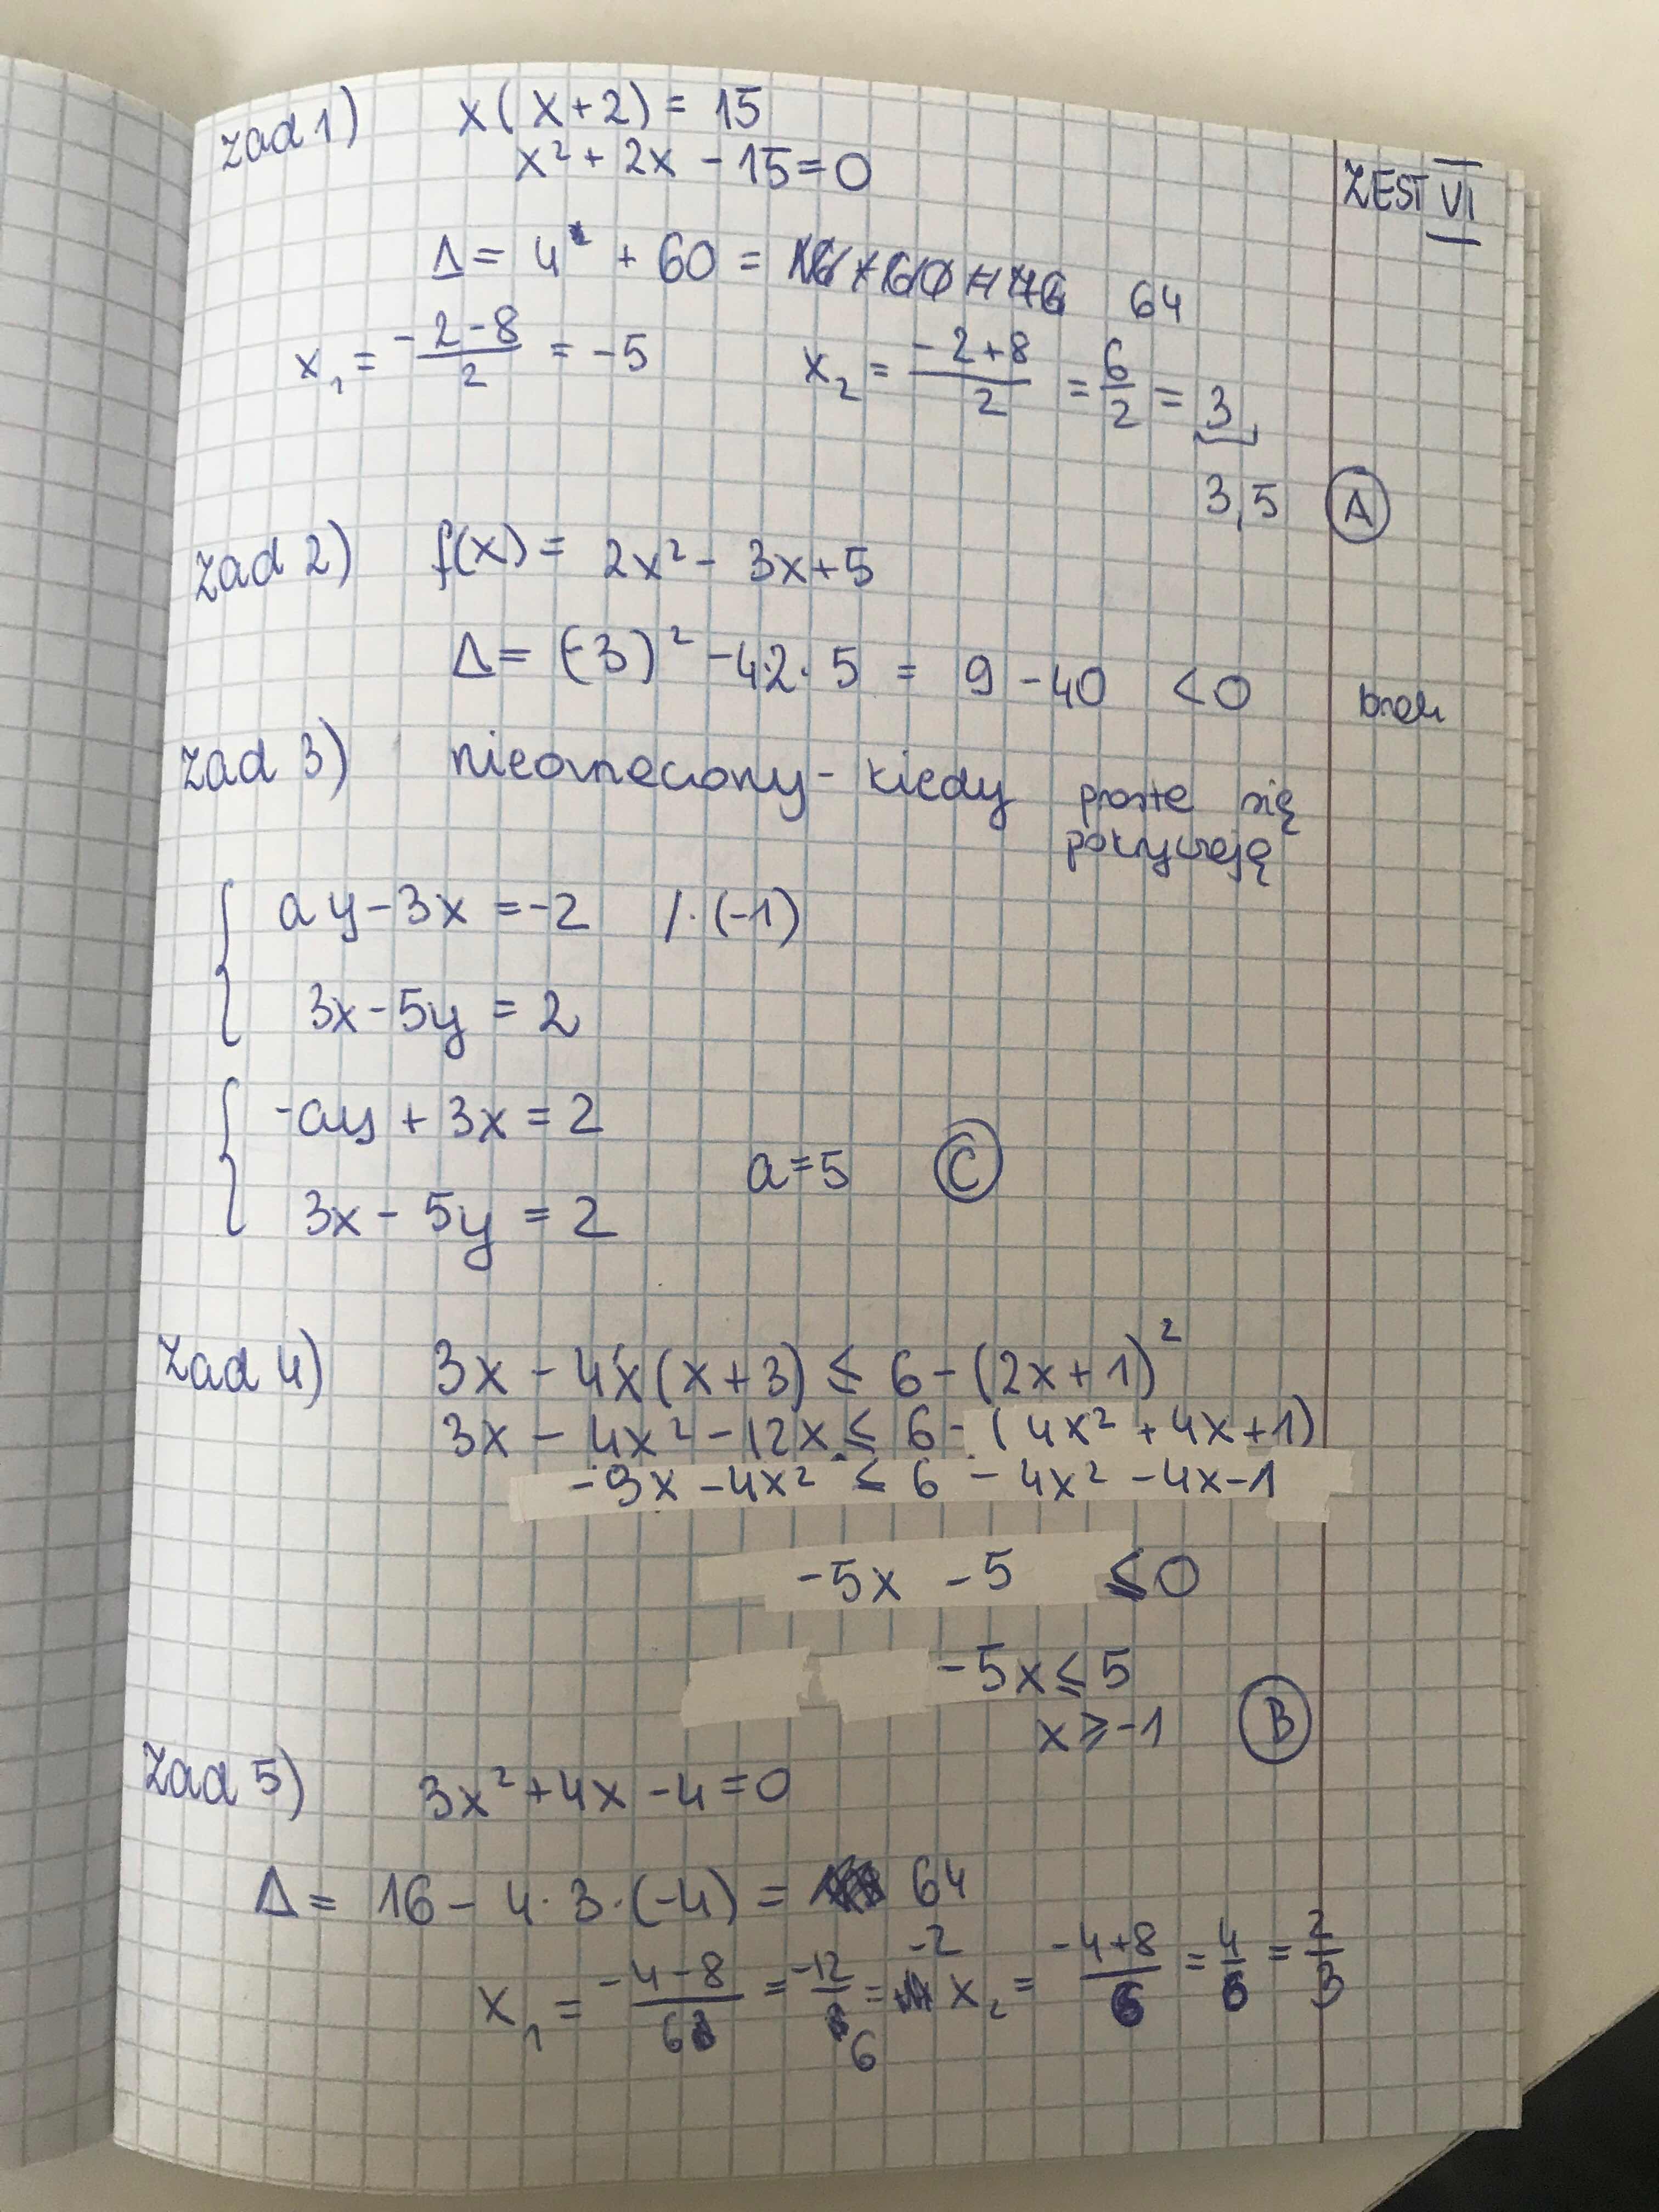 zad 1) x(x+2) = 15
ZEST VI
x² + 2x - 15 = 0
Δ = 4 + 60 = 64
x₁ = (-2-8)/2 = -5 x₂ = (-2+8)/2 = 6/2 = 3
3,5 A
zad 2) f(x) = 2x² - 3x + 5
Δ = (-3)² - 4·2·5 = 9 - 40 < 0 brak
zad 3) nieoznaczony - kiedy proste się
pokrywają
{ ay - 3x = -2 /·(-1)
3x - 5y = 2
{ -ay + 3x = 2
a = 5 C
3x - 5y = 2
zad 4) 3x - 4x(x+3) ≤ 6 - (2x+1)²
3x - 4x² - 12x ≤ 6 - (4x² + 4x + 1)
-9x - 4x² ≤ 6 - 4x² - 4x - 1
-5x - 5 ≤ 0
-5x ≤ 5
x ≥ -1 B
zad 5) 3x² + 4x - 4 = 0
Δ = 16 - 4·3·(-4) = 64
x₁ = (-4-8)/6 = -12/6 = -2 x₂ = (-4+8)/6 = 4/6 = 2/3